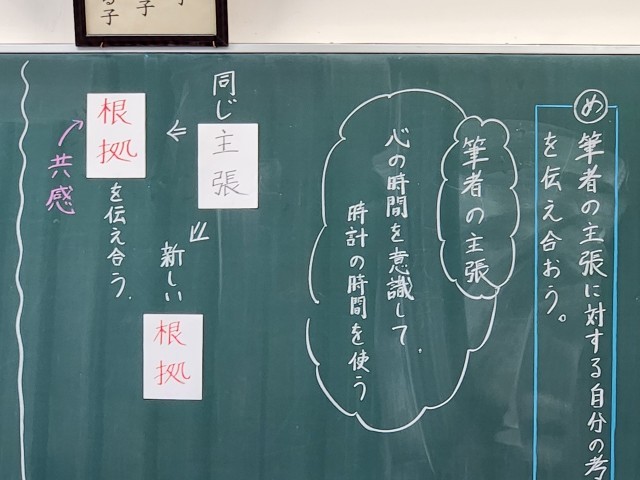 め 筆者の主張に対する自分の考
を伝え合おう。
筆者の主張
心の時間を意識して、
時計の時間を使う
同じ
主張
新しい
根拠
根拠
を伝え合う.
共感
子
る子